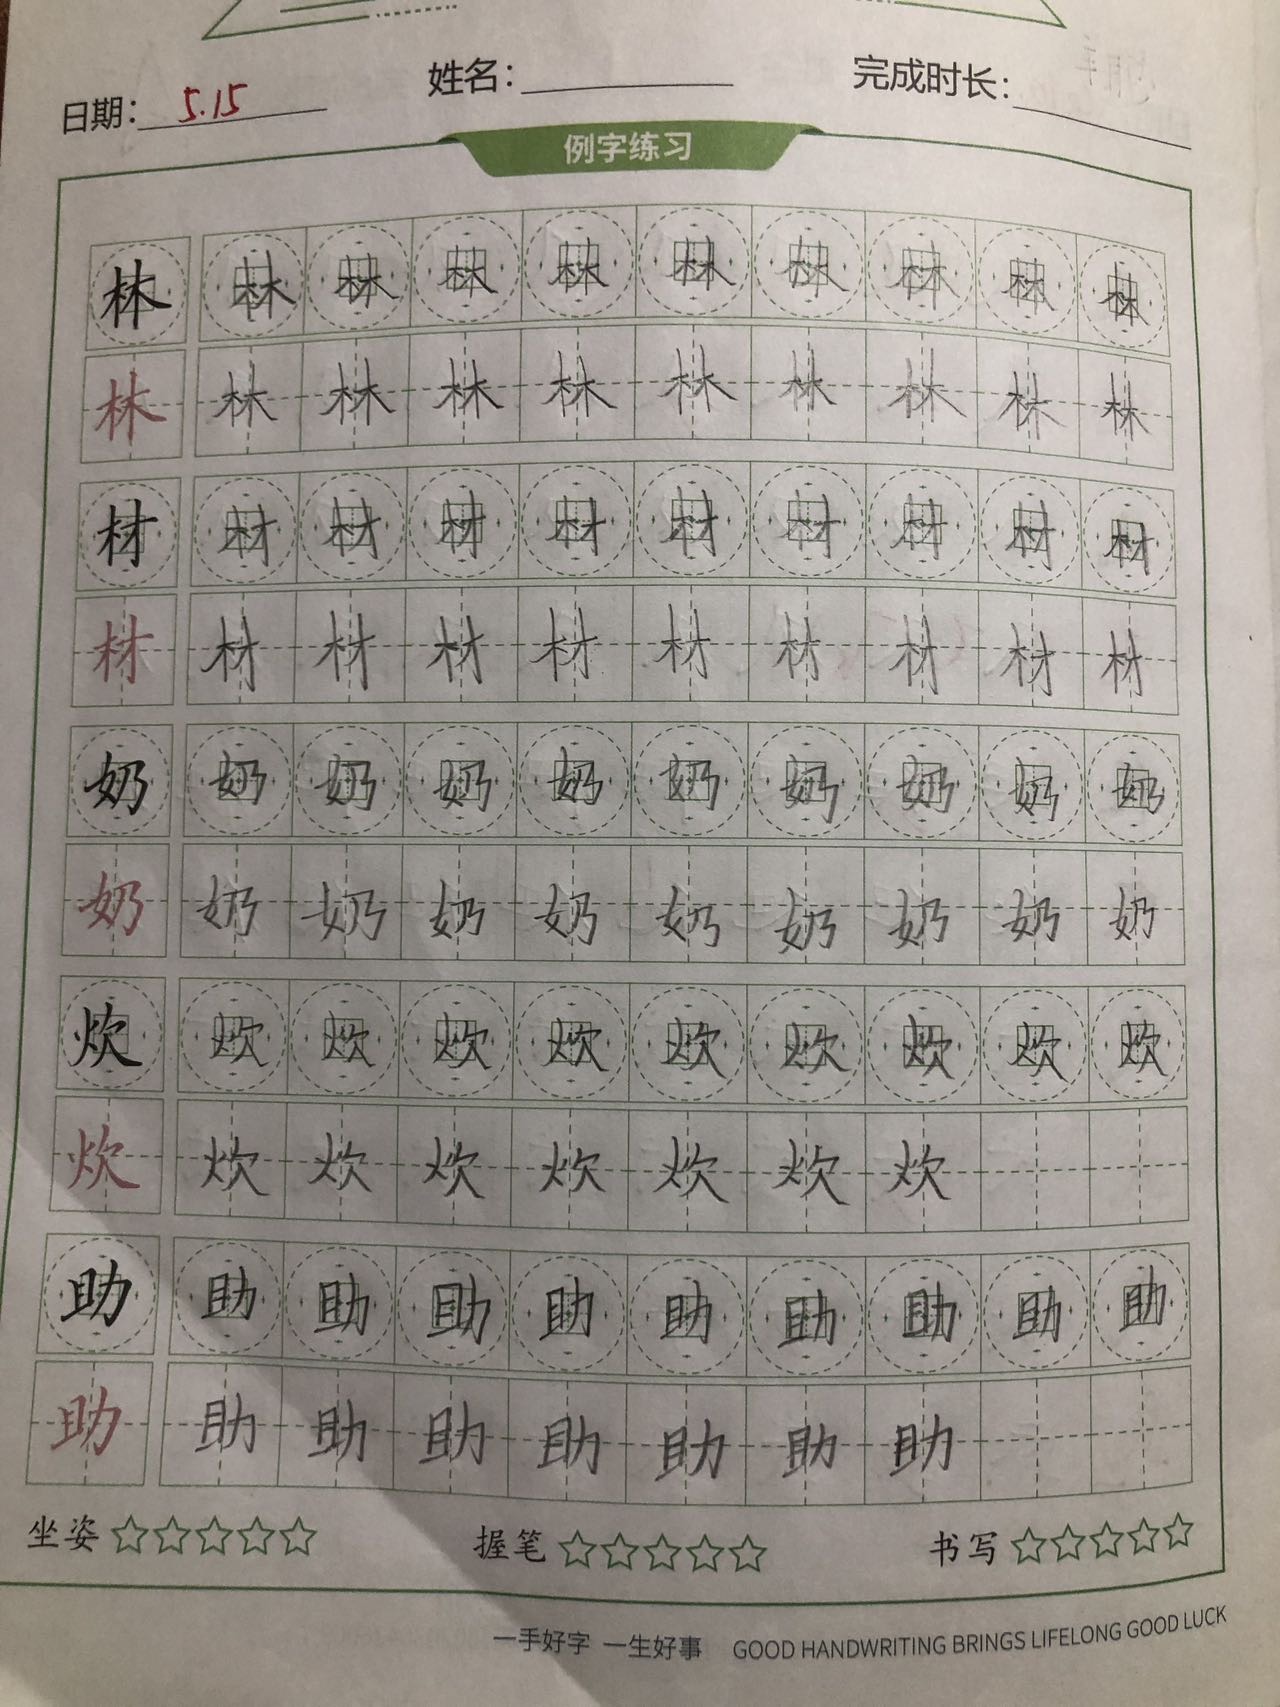 日期： 5.15 姓名： 完成时长：
例字练习
林 林 林 林 林 林 林 林 林 林
林 林 林 林 林 林 林 林 林 林
材 材 材 材 材 材 材 材 材 材
材 材 材 材 材 材 材 材 材 材
奶 奶 奶 奶 奶 奶 奶 奶 奶 奶
奶 奶 奶 奶 奶 奶 奶 奶 奶 奶
炊 炊 炊 炊 炊 炊 炊 炊 炊 炊
炊 炊 炊 炊 炊 炊 炊 炊
助 助 助 助 助 助 助 助 助 助
助 助 助 助 助 助 助 助
坐姿 握笔 书写
一手好字 一生好事 GOOD HANDWRITING BRINGS LIFELONG GOOD LUCK